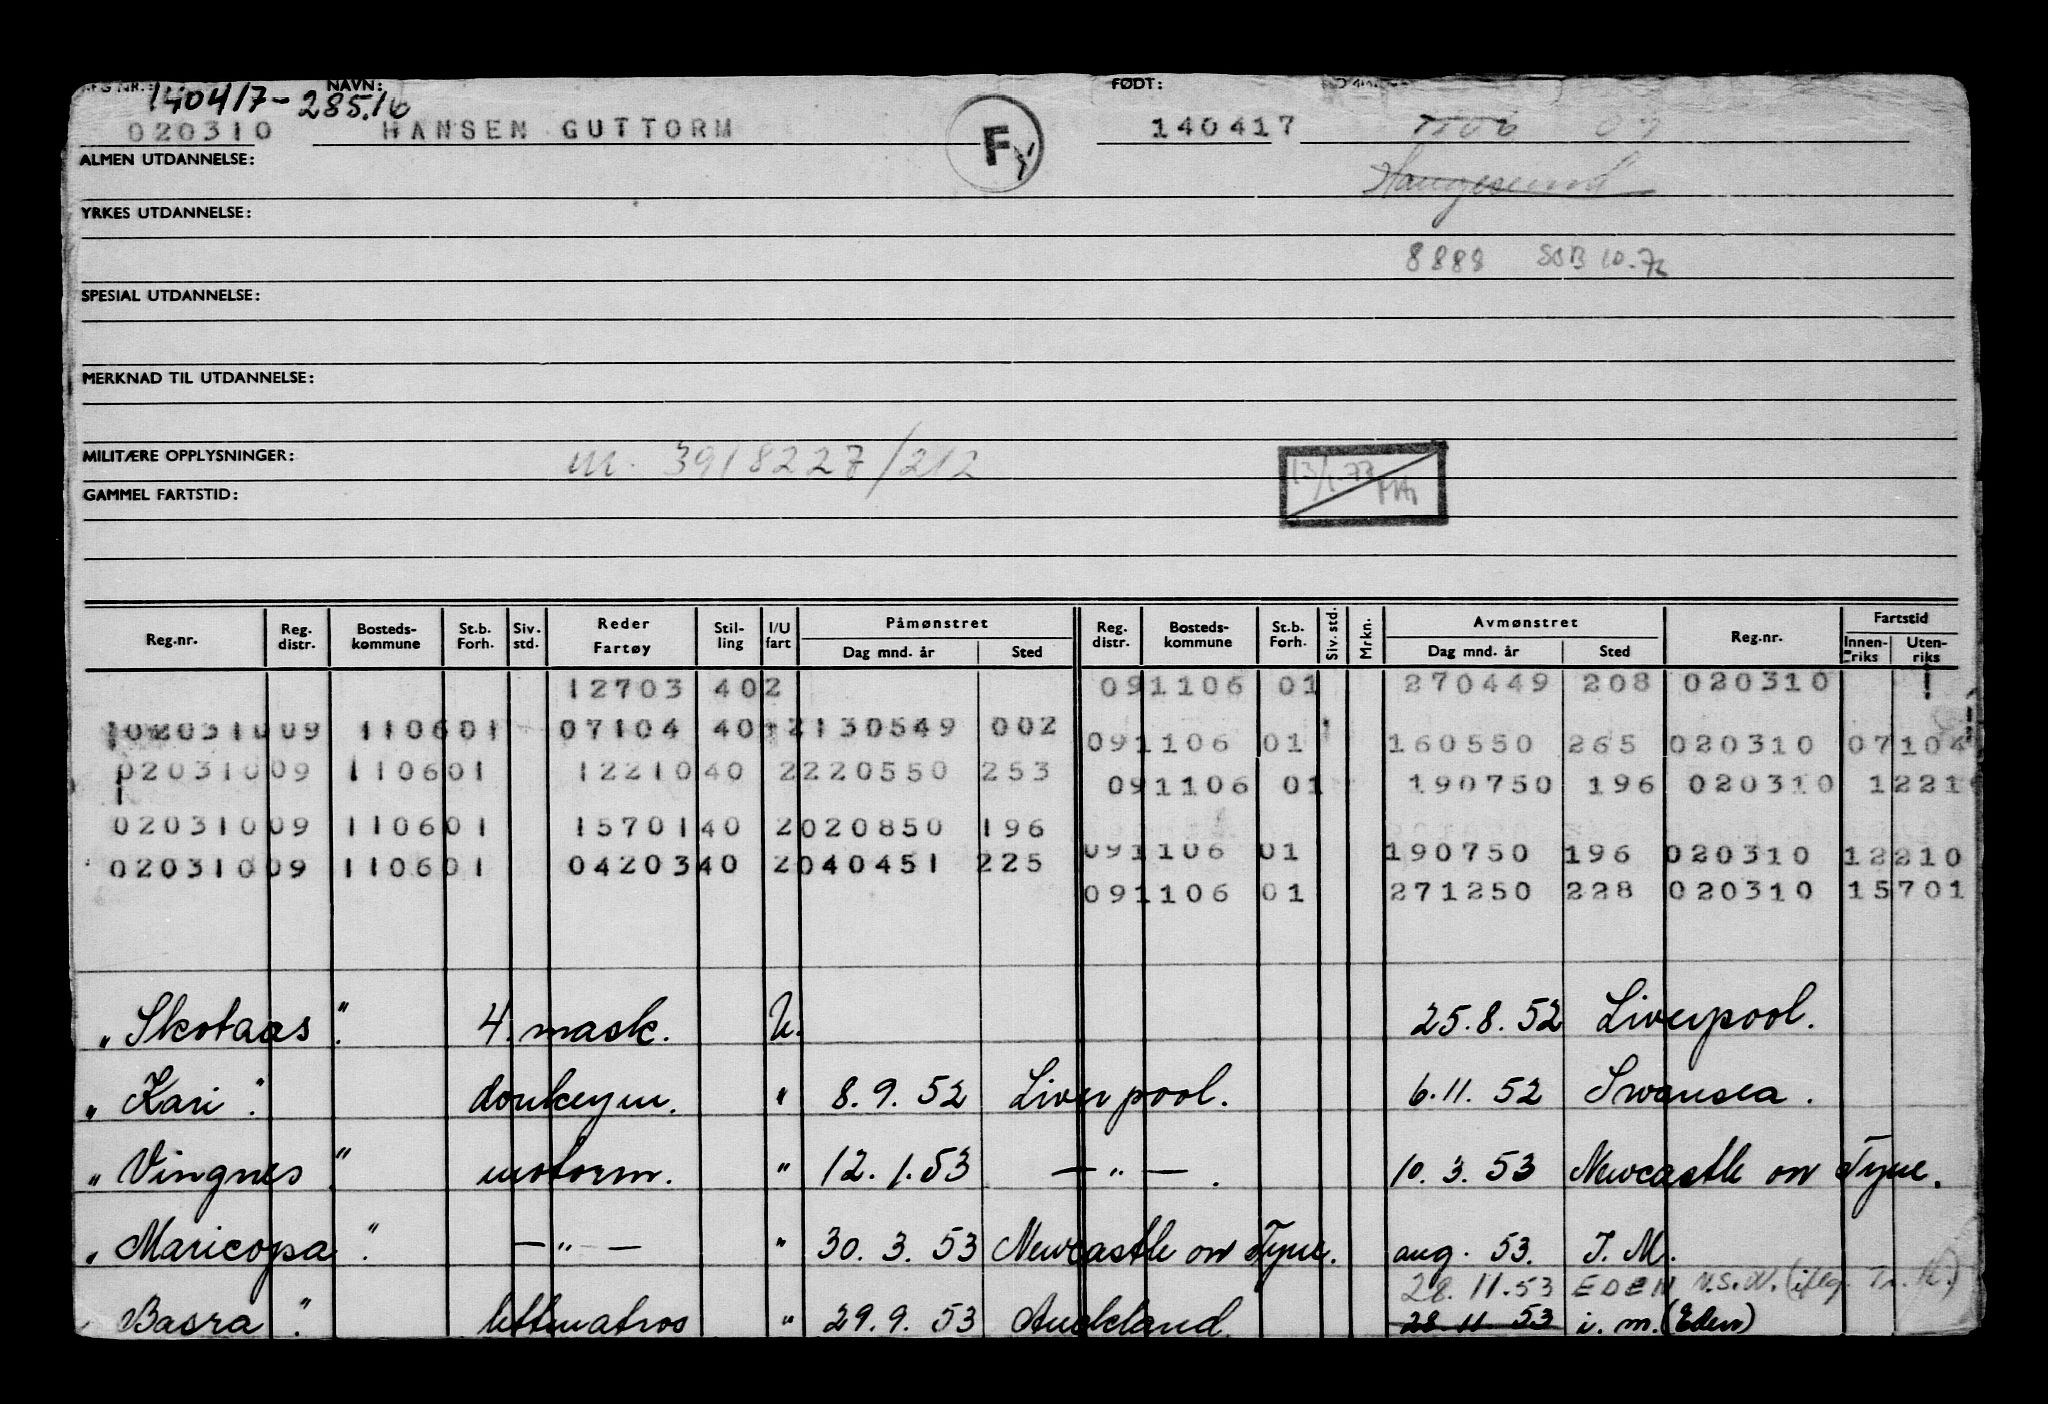 REG NR.: NAVN: FØDT:
140417-285.16
020310 HANSEN GUTTORM F 140417 1106 09
ALMEN UTDANNELSE: Haugesund
YRKES UTDANNELSE:
8888 SSB 10.72
SPESIAL UTDANNELSE:
MERKNAD TIL UTDANNELSE:
MILITÆRE OPPLYSNINGER: m. 3918227/212
13/1.73
GAMMEL FARTSTID:
Reg.nr. Reg. distr. Bosteds-kommune St.b. Forh. Siv. std. Reder Fartøy Stil-ling I/U fart Påmønstret Dag mnd. år Sted Reg. distr. Bosteds-kommune St.b. Forh. Siv. std. Mrkn. Avmønstret Dag mnd. år Sted Reg.nr. Fartstid Innen-riks Uten-riks
12703 402 091106 01 270449 208 020310
02031009 110601 07104 40 2130549 002
091106 01 160550 265 020310 07104
02031009 110601 1221040 2220550 253
091106 01 190750 196 020310 1221
02031009 110601 1570140 2020850 196
091106 01 190750 196 020310 12210
02031009 110601 0420340 2040451 225
091106 01 271250 228 020310 15701
"Skotaas". 4. mask. U. 25.8.52 Liverpool.
"Kari". donkeym. " 8.9.52 Liverpool. 6.11.52 Swansea.
"Vingnes". motorm. " 12.1.53 — " — . 10.3.53 Newcastle on Tyne.
"Maricopa". — " — " 30.3.53 Newcastle on Tyne. aug. 53. I.M.
28.11.53 EDEN
"Basra". lettmatros " 29.9.53 Auckland 28.11.53 i.m. (Eden)